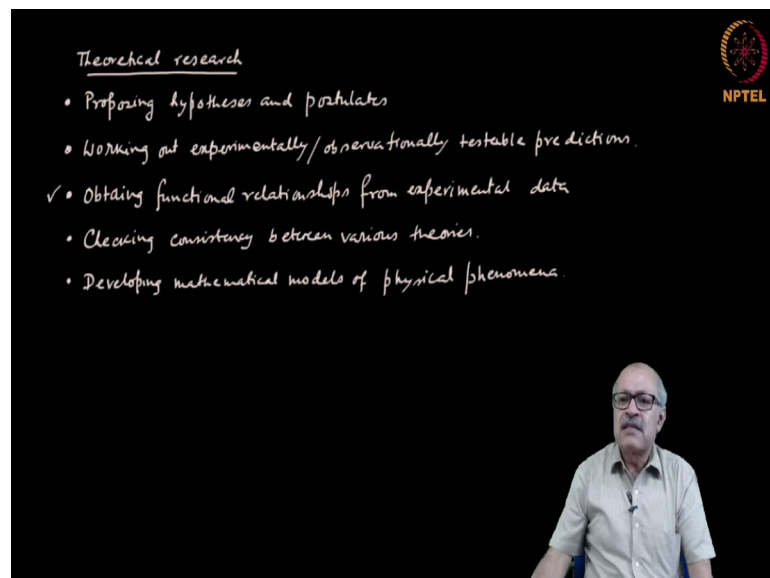 Theoretical research
• Proposing hypotheses and postulates
• Working out experimentally/observationally testable predictions.
✓• Obtaing functional relationships from experimental data
• Checking consistency between various theories.
• Developing mathematical models of physical phenomena.
NPTEL